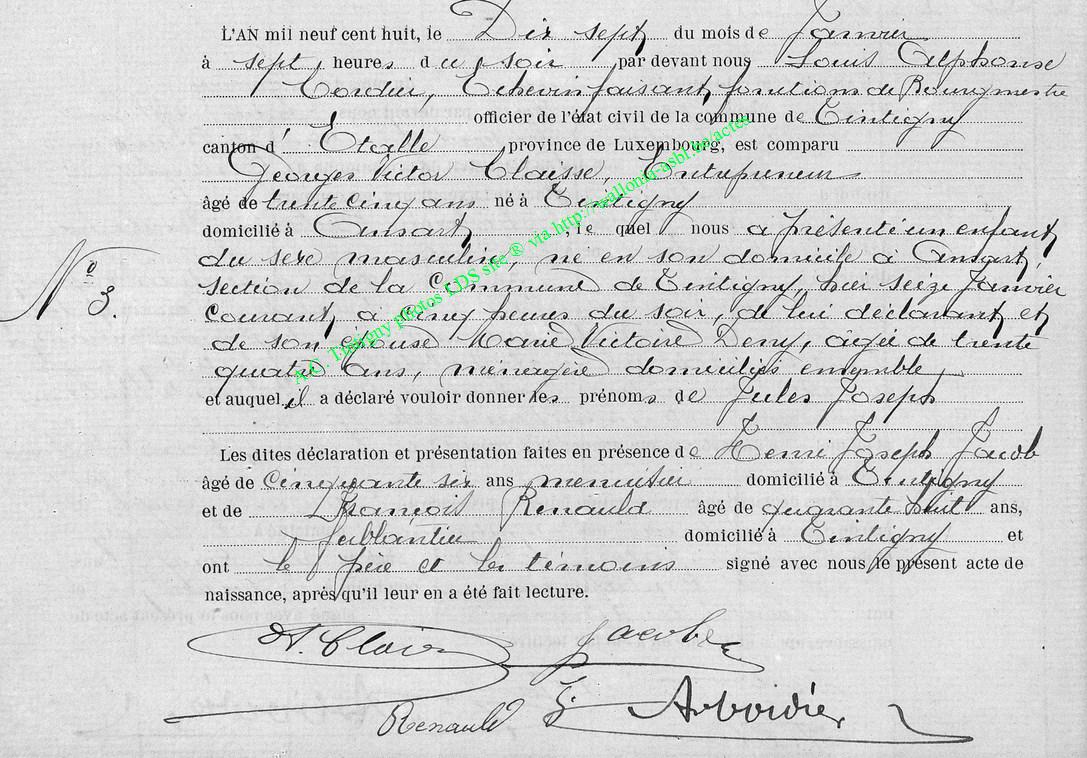 L'AN mil neuf cent huit, le Dix sept du mois de Janvier
à sept heures du soir par devant nous Louis Alphonse
Cordier, Echevin faisant fonctions de Bourgmestre
officier de l'état civil de la commune de Tintigny
canton d' Etalle province de Luxembourg, est comparu
Georges Victor Claisse, Entrepreneur
âgé de trente cinq ans né à Tintigny
domicilié à Ansart, le quel nous a présenté un enfant
du sexe masculin, né en son domicile à Ansart,
N° 3.
section de la Commune de Tintigny, hier seize Janvier
courant, à cinq heures du soir, de lui déclarant et
de son épouse Marie Victoire Deny, âgée de trente
quatre ans, ménagère domiciliés ensemble,
et auquel il a déclaré vouloir donner les prénoms de Jules Joseph
Les dites déclaration et présentation faites en présence de Henri Joseph Jacob
âgé de cinquante six ans menuisier domicilié à Tintigny
et de François Renauld âgé de quarante huit ans,
ferblantier domicilié à Tintigny et
ont le père et les témoins signé avec nous le présent acte de
naissance, après qu'il leur en a été fait lecture.
Jacob
Renauld
A.C. Tintigny photos LDS site ® via http://wallonia-asbl.be/actes